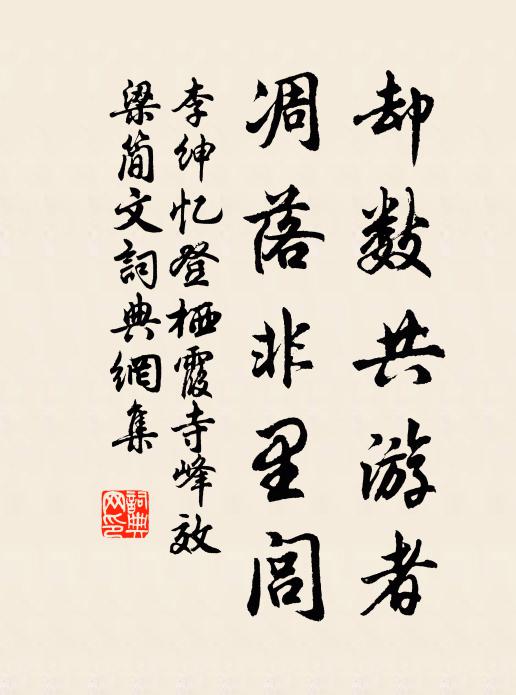 却数共游者
凋落非里闾
李绅忆登栖霞寺峰效
梁简文詞典網集
詞典
网印